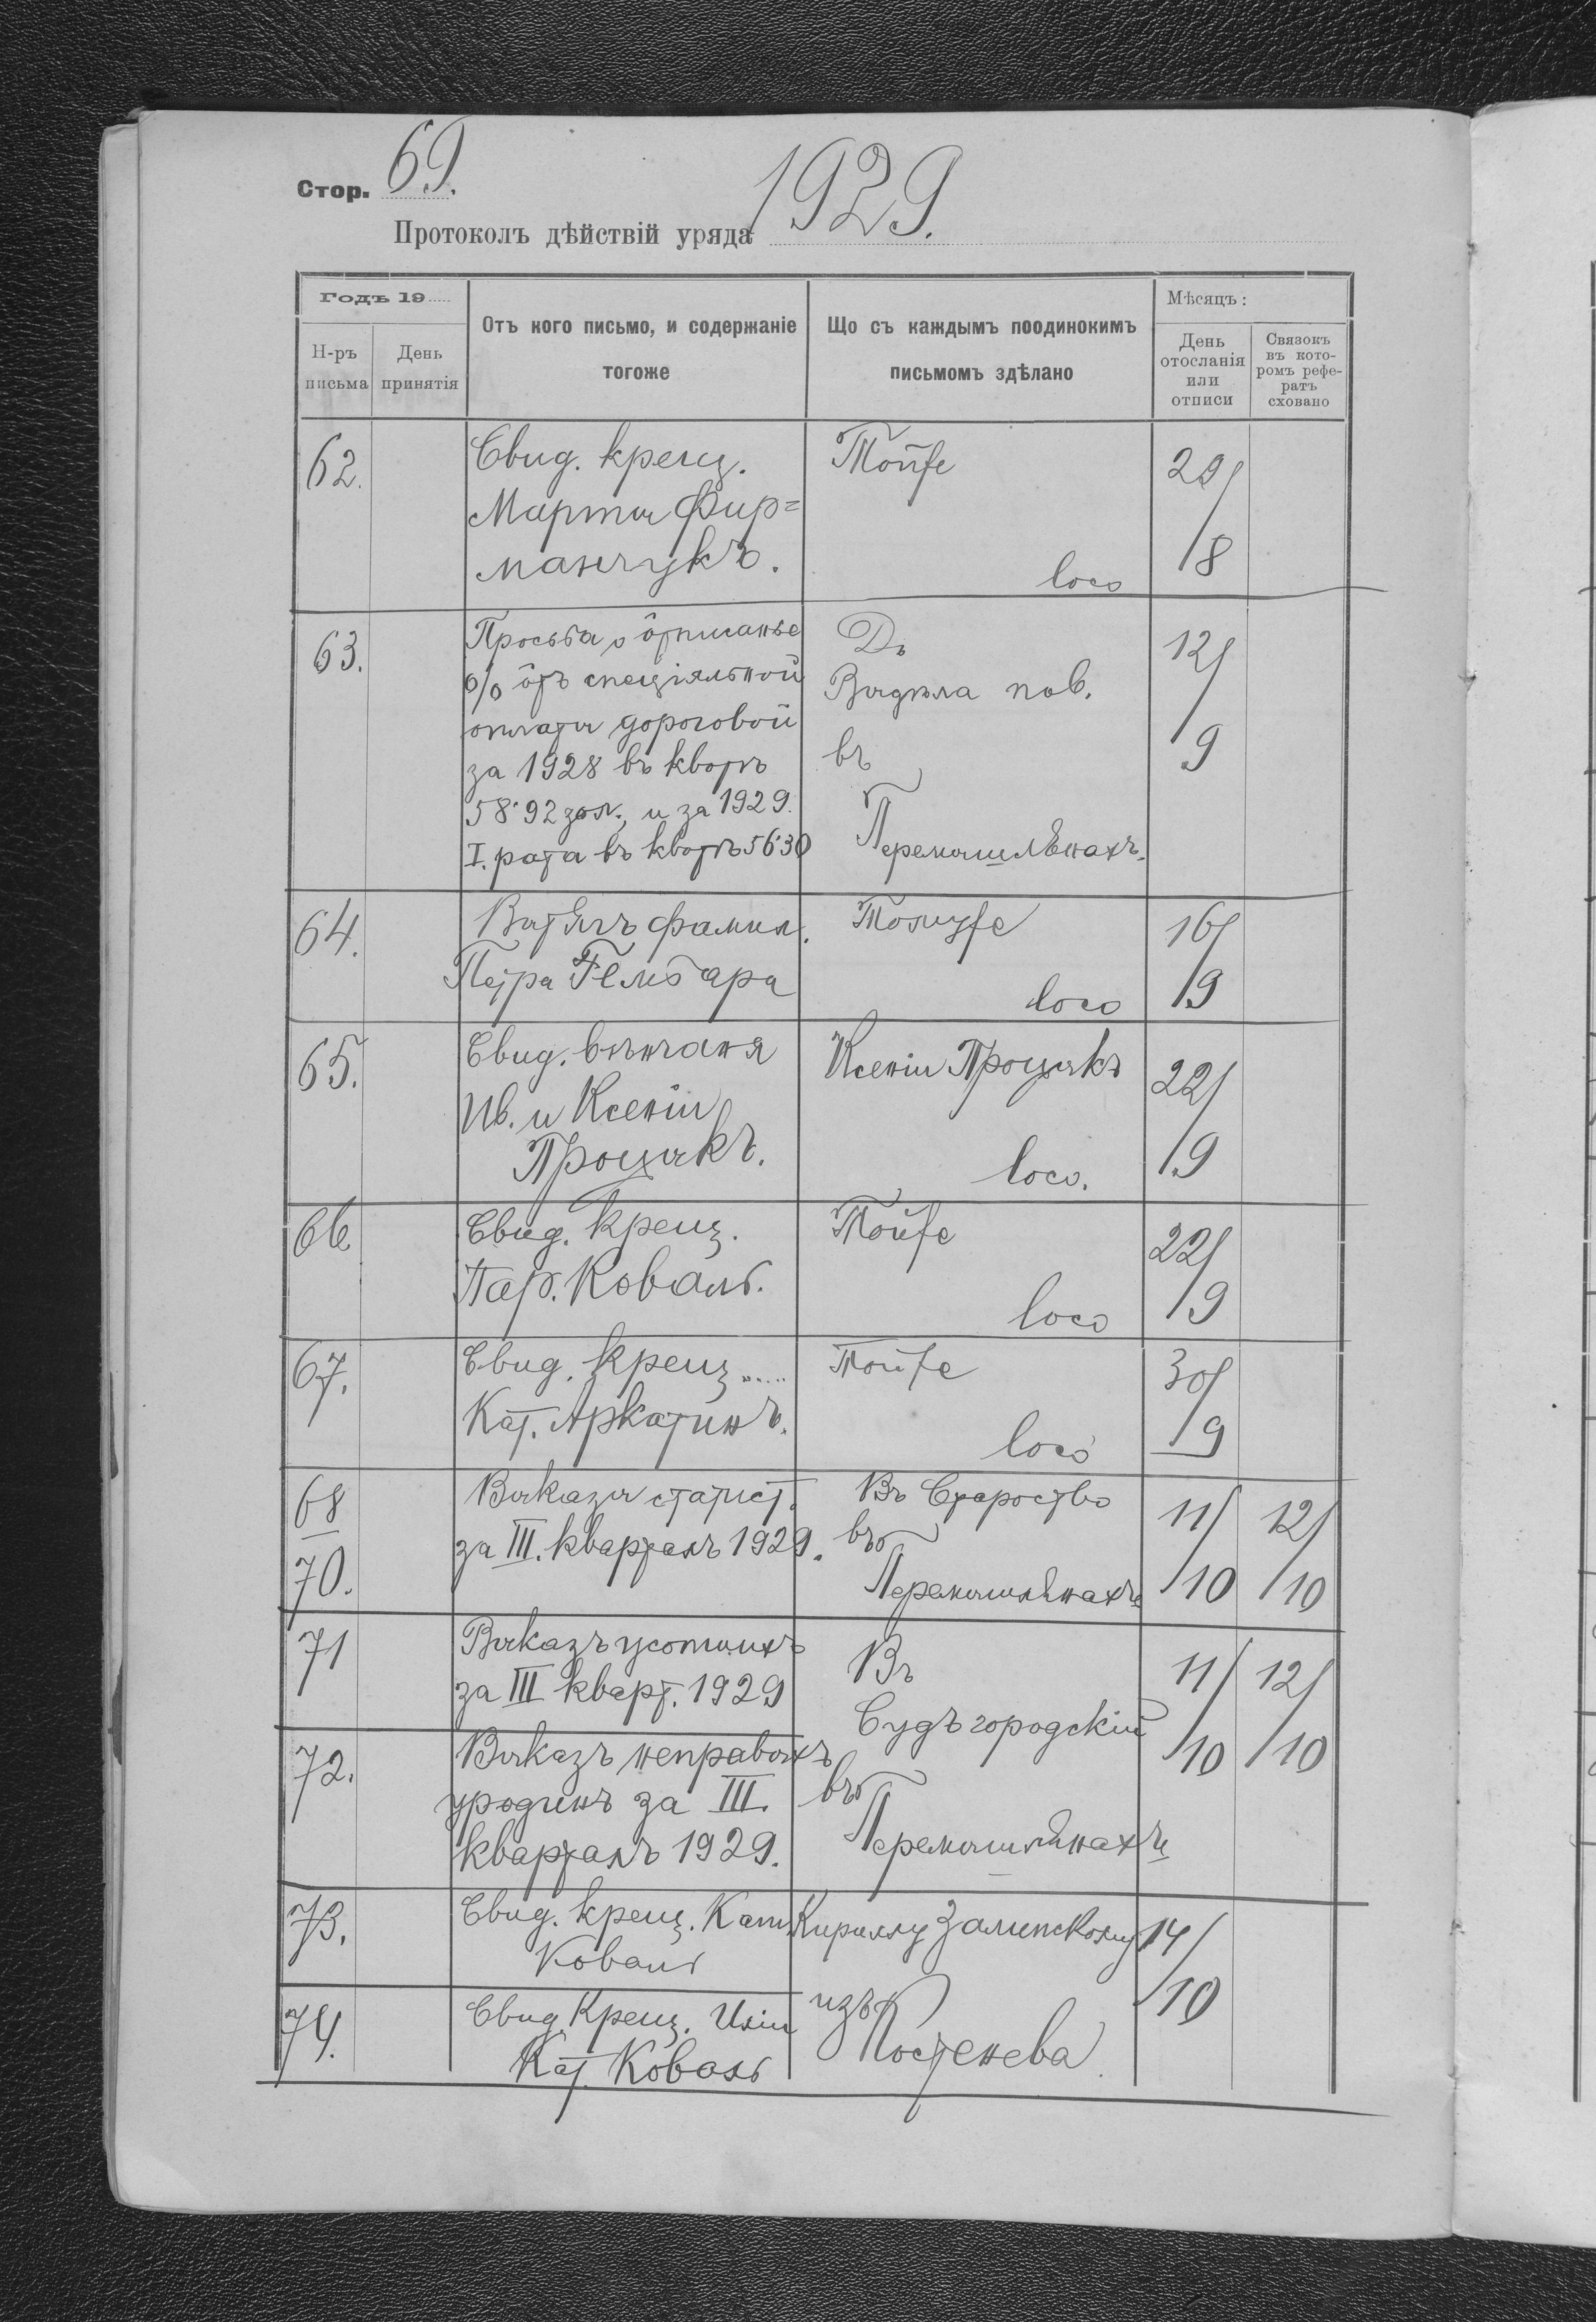 Стор. 69.
Протоколъ дѣйствій уряда 1929.
Годъ 19
Н-ръ письма
День принятія
Отъ кого письмо, и содержаніе
тогоже
Що съ каждымъ поодинокимъ
письмомъ здѣлано
Мѣсяцъ:
День
отосланія
или
отписи
Связокъ
въ кото-
ромъ рефе-
ратъ
сховано
62. Свид. крещ. Тойже 29/
Марты Фир=
манчукъ. loco /8
63. Просьба о ôтписанье До 12/
% ôтъ спеціяльной Выдѣла пов.
оплаты дороговой
за 1928 въ квотѣ въ 9
58·92 зол., и за 1929.
I. рата въ квотѣ 56·30 Перемышлѣнахъ.
64. Вытягъ фамил. Томуже 16/
Петра Гембара loco /9
65. Свид. вѣнчаня Ксеніи Процыкъ 22/
Ив. и Ксеніи
Процыкъ. loco. /9
66 Свид. крещ. Тойже 22/
Пар. Коваль. loco /9
67. Свид. крещ..... Тойже 30/
Кат. Аркатинъ. loco /9
68 Выказы статист. Въ Староство 11/ 12/
за III. кварталъ 1929. въ
70. Перемышлянахъ /10 /10
71 Выказъ усопшихъ Въ 11/ 12/
за III кварт. 1929
Судъ городскій /10 /10
72. Выказъ неправыхъ
уродинъ за III. въ
кварталъ 1929. Перемышлянахъ
73. Свид. крещ. Кат. Кириллу Залипскому 14/
Коваль /10
74. Свид. Крещ. Юліи изъ
Кат. Коваль Костенева